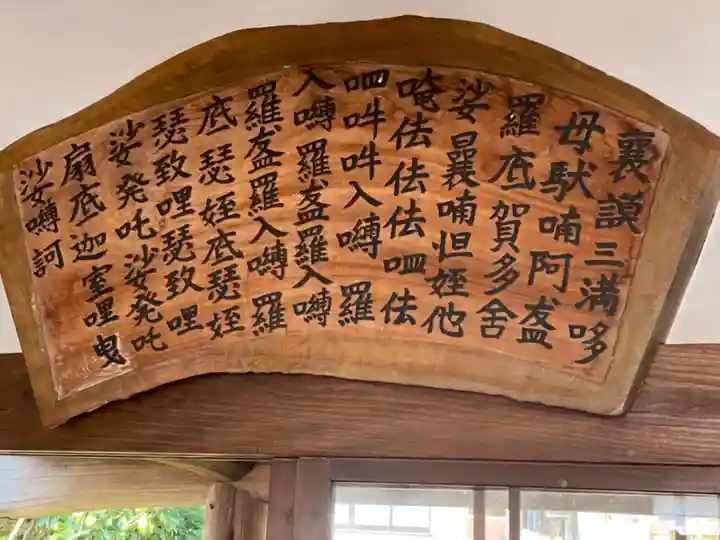 曩謨三満哆
母駄喃阿盋
羅底賀多舍
娑曩喃怛姪他
唵佉佉佉呬佉
呬吽吽入嚩羅
入嚩羅盋羅入嚩
羅盋羅入嚩羅
底瑟姪底瑟姪
瑟致哩瑟致哩
娑発吒娑発吒
扇底迦室哩曳
娑嚩訶